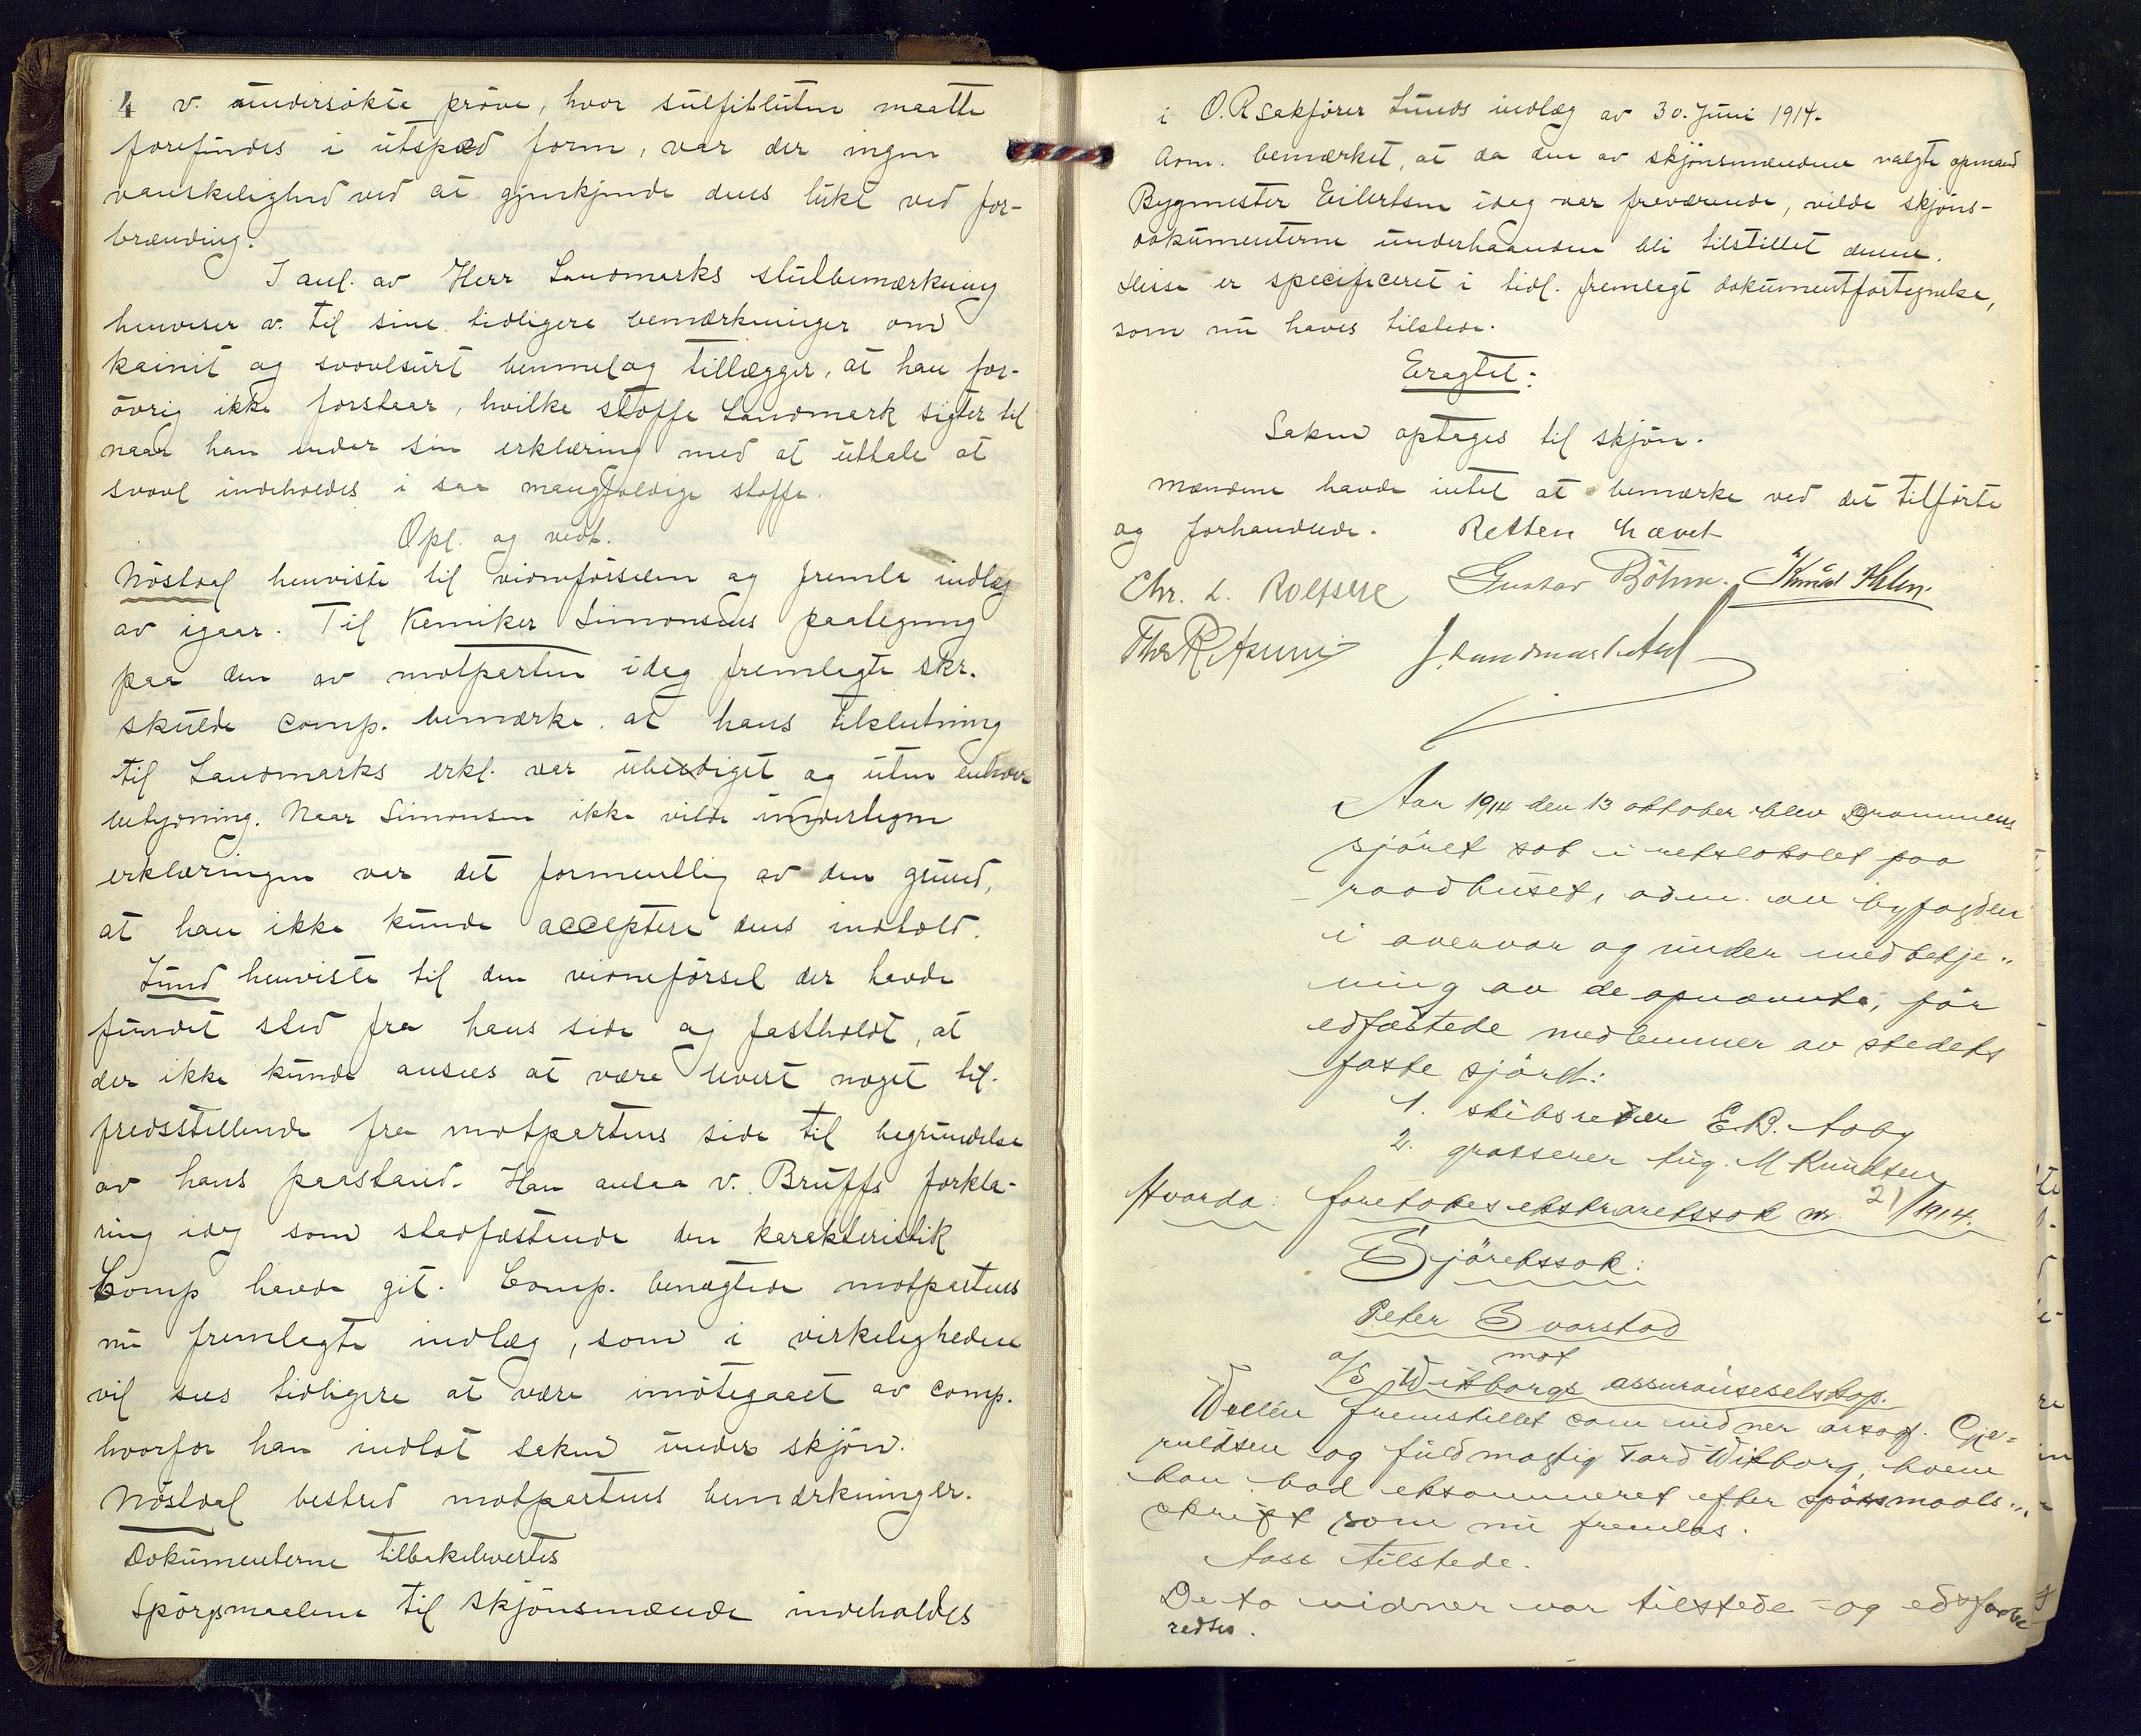 4 v. undersøkte prøve, hvor sulfitluten maatte
forefindes i utspæd form, var der ingen
vanskelighed ved at gjenkjende dens lukt ved for-
brænding.
I anl. av Herr Landmarks slutbemærkning
henviser v. til sine tidligere bemærkninger om
kainit og svovlsurt ammoniak tillægger, at han for-
øvrig ikke forstaar, hvilke stoffe Landmark sigter til
naar han ender sin erklæring med at uttale at
svovl indeholdes i saa mangfoldige stoffe.
Opl. og vedt.
Nöstdal henviste til vidneførselen og fremla indlæg
av igaar. Til Kemiker Simonsens paategning
paa den av motparten idag fremlagte skr.
skulde comp. bemærke at hans tilslutning
til Landmarks erkl. var ubeediget og uten enhver
betydning. Naar Simonsen ikke vilde undertegne
erklæringen var det formentlig av den grund,
at han ikke kunde acceptere dens indhold.
Lund henviste til den vidneførsel der havde
fundet sted fra hans side og fastholdt, at
der ikke kunde ansees at være levert noget til-
fredsstillende fra motpartens side til begrundelse
av hans paastand. Han ansaa v. Bruffs forkla-
ring idag som stadfæstende den karakteristik
Comp havde git. Comp. benægtede motpartens
nu fremlagte indlæg, som i virkeligheden
vil sees tidligere at være imøtegaaet av comp.
hvorfor han indlot saken under skjøn.
Nöstdal bestred motpartens bemærkninger.
Dokumenterne tilbakelevertes
Spörgsmaalene til skjönsmænde indeholdes
i O.R.sakförer Lunds indlæg av 30. Juni 1914.
Adm. bemærket, at da den av skjönsmændene valgte opmand
Bygmester Eilertsen idag var fraværende, vilde skjöns-
dokumenterne underhaanden bli tilstillet denne.
Disse er specificeret i tidl. fremlagt dokumentfortegnelse,
som nu haves tilstede.
Eragtet:
Saken optages til skjön.
Mændene havde intet at bemærke ved det tilførte
og forhandlede. Retten hævet
Chr. L. Rolfsen Gustav Böhm. Knud Holm.
J. Landmark
Aar 1914 den 13 oktober blev Drammens
sjöret sat i retslokalet paa
raadhuset, adm. av byfogden
i overvær og under medbetje-
ning av de opnævnte, för
edfæstede medlemmer av stedets
faste sjöret:
1. skibsreder E.B. Aaby
2. grosserer Aug. M Knudsen
Hvorda: foretokes ekstraretssak nr. 21/1914.
Sjöretssak:
Peter Svarstad
mot
a/s Witborgs assuranseselskap.
Wullén fremstillet som vidner assag. Gje-
ruldsen og fuldmægtig Tard Witborg, hvem
han bad eksamineret efter spörsmaals-
skrift som nu fremlas.
Aass tilstede.
De to vidner var tilstede og edsforbe
redtes.